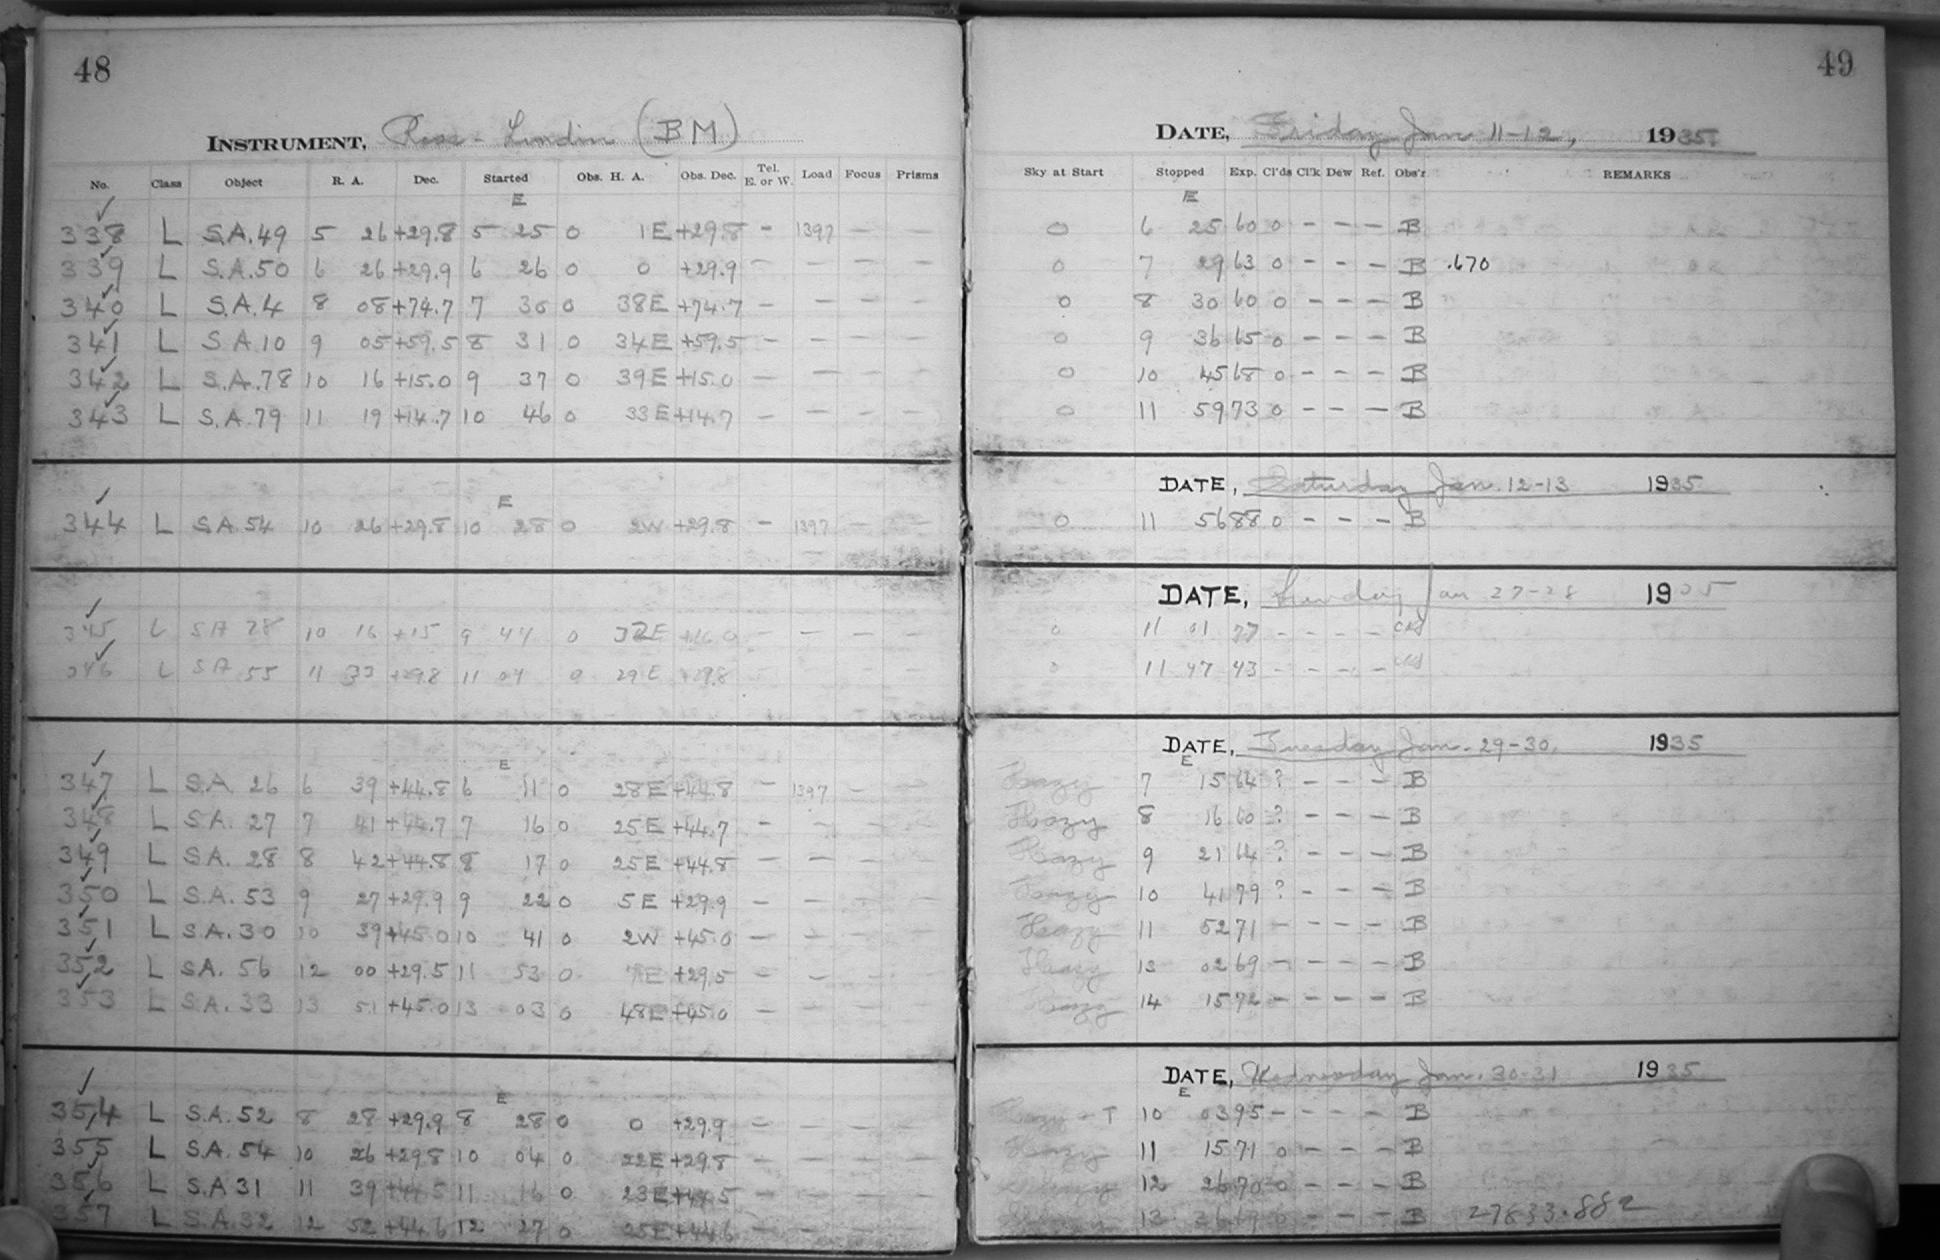 48
INSTRUMENT, Ross - Lundin (BM)
No. Class Object R. A. Dec. Started Obs. H. A. Obs. Dec. Tel. E. or W. Load Focus Prisms
E
338 L S.A.49 5 26 +29.8 5 25 0 1E +29.8 - 1397 - -
339 L S.A.50 6 26 +29.9 6 26 0 0 +29.9 - - - -
340 L S.A.4 8 08 +74.7 7 30 0 38E +74.7 - - - -
341 L S.A.10 9 05 +59.5 8 31 0 34E +59.5 - - - -
342 L S.A.78 10 16 +15.0 9 37 0 39E +15.0 - - - -
343 L S.A.79 11 19 +14.7 10 46 0 33E +14.7 - - - -
E
344 L S.A.54 10 26 +29.8 10 28 0 2W +29.8 - 1397 - -
345 L SA 78 10 16 +15 9 44 0 32E - - - -
346 L SA 55 11 33 +29.8 11 04 0 29E +29.8
E
347 L S.A. 26 6 39 +44.8 6 11 0 28E +44.8 - 1397 - -
348 L S.A. 27 7 41 +44.7 7 16 0 25E +44.7 - - - -
349 L S.A. 28 8 42 +44.8 8 17 0 25E +44.8 - - - -
350 L S.A. 53 9 27 +29.9 9 22 0 5E +29.9 - - - -
351 L S.A. 30 10 39 +45.0 10 41 0 2W +45.0 - - - -
352 L S.A. 56 12 00 +29.5 11 53 0 7E +29.5 - - - -
353 L S.A. 33 13 51 +45.0 13 03 0 48E +45.0 - - - -
E
354 L S.A. 52 8 28 +29.9 8 28 0 0 +29.9 - - - -
355 L S.A. 54 10 26 +29.8 10 04 0 22E +29.8 - - - -
356 L S.A 31 11 39 +44.5 11 16 0 23E +44.5 - - - -
357 L S.A. 32 12 52 +44.6 12 27 0 25E +44.6 - - - -
49
DATE, Friday Jan 11-12, 1935
Sky at Start Stopped Exp. Cl'ds Cl'k Dew Ref. Obs'r REMARKS
E
0 6 25 60 0 - - - B
0 7 29 63 0 - - - B .670
0 8 30 60 0 - - - B
0 9 36 65 0 - - - B
0 10 45 68 0 - - - B
0 11 59 73 0 - - - B
DATE, Saturday Jan. 12-13 1935
0 11 56 88 0 - - - B
DATE, Sunday Jan 27-28 1935
0 11 01 77 - - - -
0 11 47 43 - - - -
DATE, Tuesday Jan. 29-30, 1935
E
Hazy 7 15 64 ? - - - B
Hazy 8 16 60 ? - - - B
Hazy 9 21 64 ? - - - B
Hazy 10 41 79 ? - - - B
Hazy 11 52 71 - - - - B
Hazy 13 02 69 - - - - B
Hazy 14 15 72 - - - - B
DATE, Wednesday Jan. 30-31 1935
E
Hazy - T 10 03 95 - - - - B
Hazy 11 15 71 0 - - - B
Hazy 12 26 70 0 - - - B
13 - - - B 27833.882